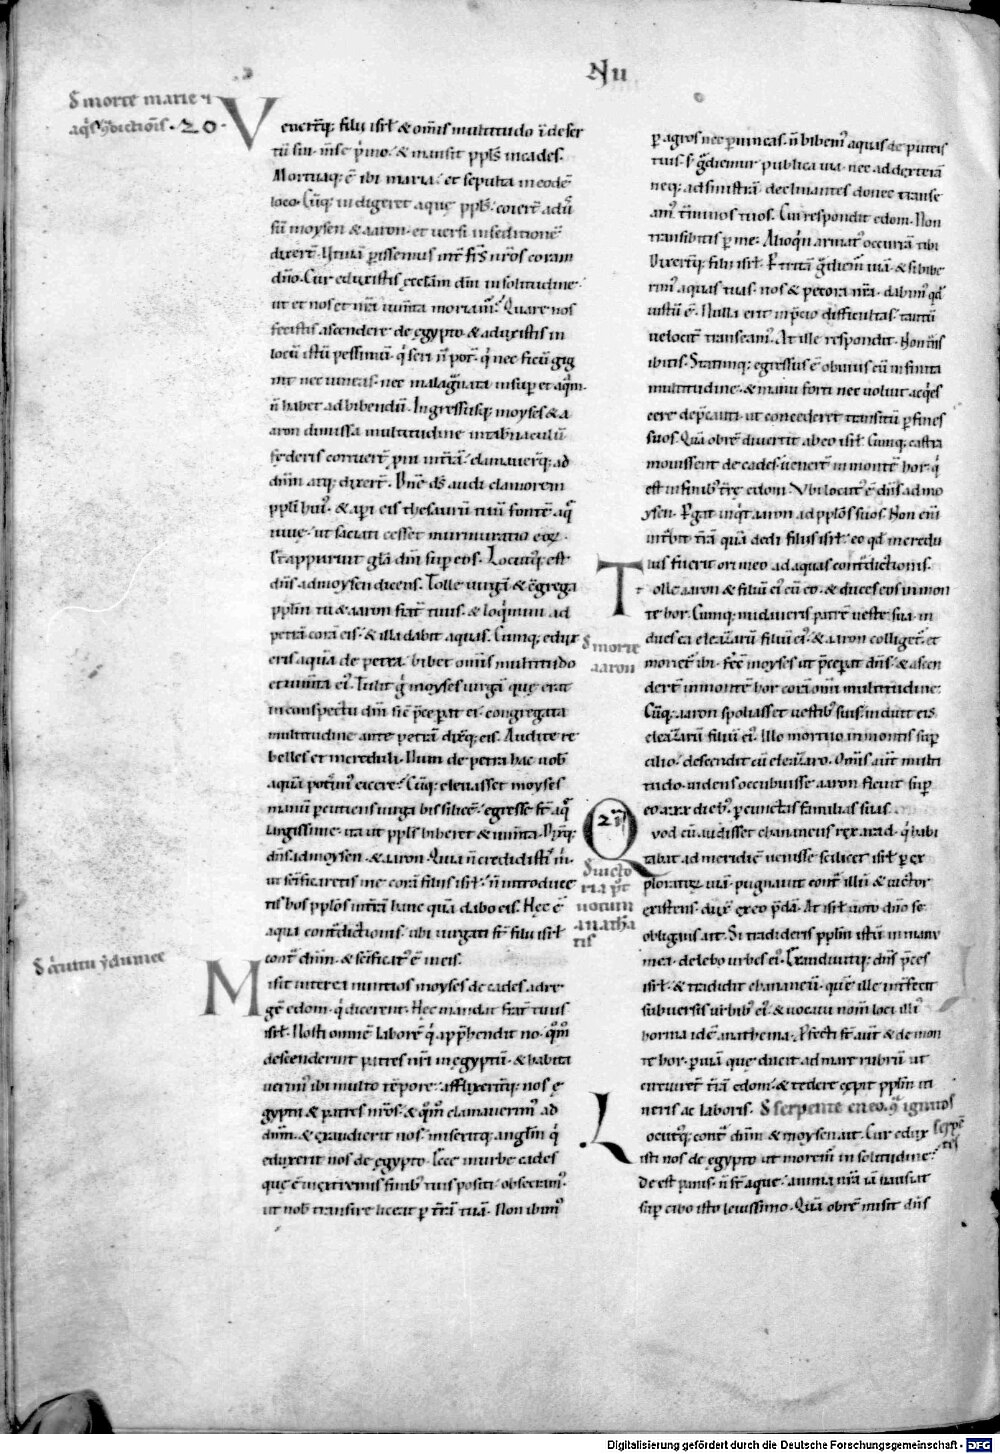 Nu
δ morte marie ⁊
aq̄s ꝯtdictiōis · 20 ·
Venerūtq; filii isrł & om̄is multitudo ī deser
tū sin · m̄se p̄mo · & mansit ppłs in cades.
Mortuaq; ē ibi maria · et sepulta in eodē
loco. Cūq; indigeret aque ppłs · coierūt adū
sū moysen & aaron · et versi in seditionē
dixerūt. Utinā perissemus int̄ frs̄ nr̄os coram
dn̄o. Cur eduxistis ęccłam dn̄i in solitudinē
ut et nos et nr̄a iumenta moriamᷣ? Quare nos
fecistis ascendere de ęgypto & aduxistis in
locū istū pessimū · q̄ seri n̄ pot · q̄ nec ficū gig
nit nec uineas · nec malagranata insup et aquā
n̄ habet ad bibendū. Ingressusq; moyses & a
aron dimissa multitudine in tabnaculū
federis corruerūt pni in t̄rā · clamauerūtq; ad
dn̄m atq; dixerūt. Dn̄e ds̄ audi clamorem
ppłi huiꝰ · & api eis thesaurū tuū fontē aquę
uiuę · ut saciati cesset murmuratio eoꝝ.
Et appuruit gła dn̄i sup eos. Locutusq; est
dn̄s ad moysen dicens. Tolle uirgā & ꝯgrega
ppłm tu & aaron frat̄ tuus · & loqimini ad
petrā corā eis · & illa dabit aquas. Cumq; edux
eris aquā de petra · bibet om̄is multitudo
et iumta eiꝰ. Tulit g̊ moyses uirgā que erat
in conspectu dn̄i sic p̄cepat ei · congregata
multitudine ante petrā dixitq; eis. Audite re
belles et increduli. Num de petra hac uob̄
aquā potim̄ eicere? Cūq; eleuasset moyses
manū pcutiens uirga bis silicē · egresse st̄ aquę
largissime · ita ut ppłs biberet & iumta. Dixitq;
dn̄s ad moysen & aaron. Quia n̄ credidistis m̄
ut scīficaretis me corā filiis isrł · n̄ introduce
tis hos ppłos in t̄rā hanc quā dabo eis. Hęc ē
aqua contdictionis · ubi iurgati st̄ filii isrł
cont̄ dn̄m · & scīficatꝰ ē in eis.
δ trāsitu ydumee
Misit interea nuntios moyses de cades ad re
gē edom · q̄ dicerent. Hęc mandat frat̄ tuus
isrł. Nosti omnē laborē q̄ apphendit nos · qm̄
descenderint patres nr̄i in ęgyptū · & habita
uerimꝰ ibi multo tēpore · afflixerintq; nos ę
gyptii & patres nr̄os · & qm̄ clamauerimꝰ ad
dn̄m · & exaudierit nos · miseritq; angłm q̄
eduxerit nos de ęgypto. Ecce in urbe cades
que ē in extremis finibꝰ tuis positi · obsecramꝰ
ut nob̄ transire liceat p t̄rā tuā. Non ibimꝰ
p agros nec p uineas · n̄ bibemꝰ aquas de puteis
tuis · s; gdiemur publica uia · nec ad dexterā
neq; ad sinistrā declinantes donec transe
amꝰ t̄minos tuos. Cui respondit edom. Non
transibitis p me. Alioqin armatꝰ occurrā tibi
Dixerūtq; filii isrł. P tritā gdiemꝰ uiā · & si bibe
rimꝰ aquas tuas · nos & pecora nr̄a · dabimꝰ qd
iustū ē. Nulla erit in p̄cio difficultas · tantū
velocit̄ transeamꝰ. At ille respondit. Non t̄ns
ibitis. Statimq; egressus ē obuius cū infinita
multitudine · & manu forti · nec uoluit acqies
cere dep̄canti · ut concederet transitū p fines
suos. Quā obrē diuertit ab eo isrł. Cumq; castra
mouissent de cades · uenerūt in montē hor · q̄
est in finibꝰ t̄rę edom. Ubi locutꝰ ē dn̄s ad mo
ysen. Pgat inqt aaron ad ppłos suos. Non eni
intbit t̄rā quā dedi filiis isrł · eo qd incredu
lus fuerit ori meo ad aquas contdictionis.
Tolle aaron & filiū eiꝰ cū eo · & duces eos in mon
te hor. Cumq; nudaueris patrē ueste sua · in
δ morte
aaron
dues ea eleazarū filiū eiꝰ · & aaron colliget̄ · et
moriet̄ ibi. Fec̄ moyses ut p̄cepat dn̄s · & ascen
derūt in montē hor corā om̄i multitudine.
Cūq; aaron spoliasset uestibꝰ suis · induit eis
eleazarū filiū eiꝰ. Illo mortuo in montis sup
cilio · descendit cū eleazaro. Om̄is aut̄ multi
tudo uidens occubuisse aaron fleuit sup
eo xxx diebꝰ · p cunctas familias suas.
21
Quod cū audisset chananeus rex arad · q̄ habi
δ uicto
ria p̄t
uotum
anathe
tis
tabat ad meridiē uenisse scilicet isrł p ex
ploratoꝝ uiā · pugnauit cont̄ illū & uictor
existens · duxꝰ ex eo p̄dā. At isrł uoto dn̄o se
obligans ait. Si tradideris ppłm istū in manu
mea · delebo urbes eiꝰ. Exaudiuitq; dn̄s p̄ces
isrł · & tradidit chananeū · quē ille int̄fecit
subuersis urbibꝰ eiꝰ · & uocauit nom̄ loci illiꝰ
horma idē anathema. Pfecti st̄ aut̄ & de mon
te hor · p uiā que ducit ad mare rubrū · ut
circuirēt t̄rā edom · & tedere cępit ppłm iti
neris ac laboris. δ serpente eneo · ⁊ ignitos
serpē
tis
Locutusq; cont̄ dn̄m & moysen ait. Cur edux
isti nos de ęgypto ut moremꝰ in solitudine?
De est panis · n̄ st̄ aque · anima nr̄a iā nausiat
sup cibo isto leuissimo. Quā obrē misit dn̄s
Digitalisierung gefördert durch die Deutsche Forschungsgemeinschaft - DFG